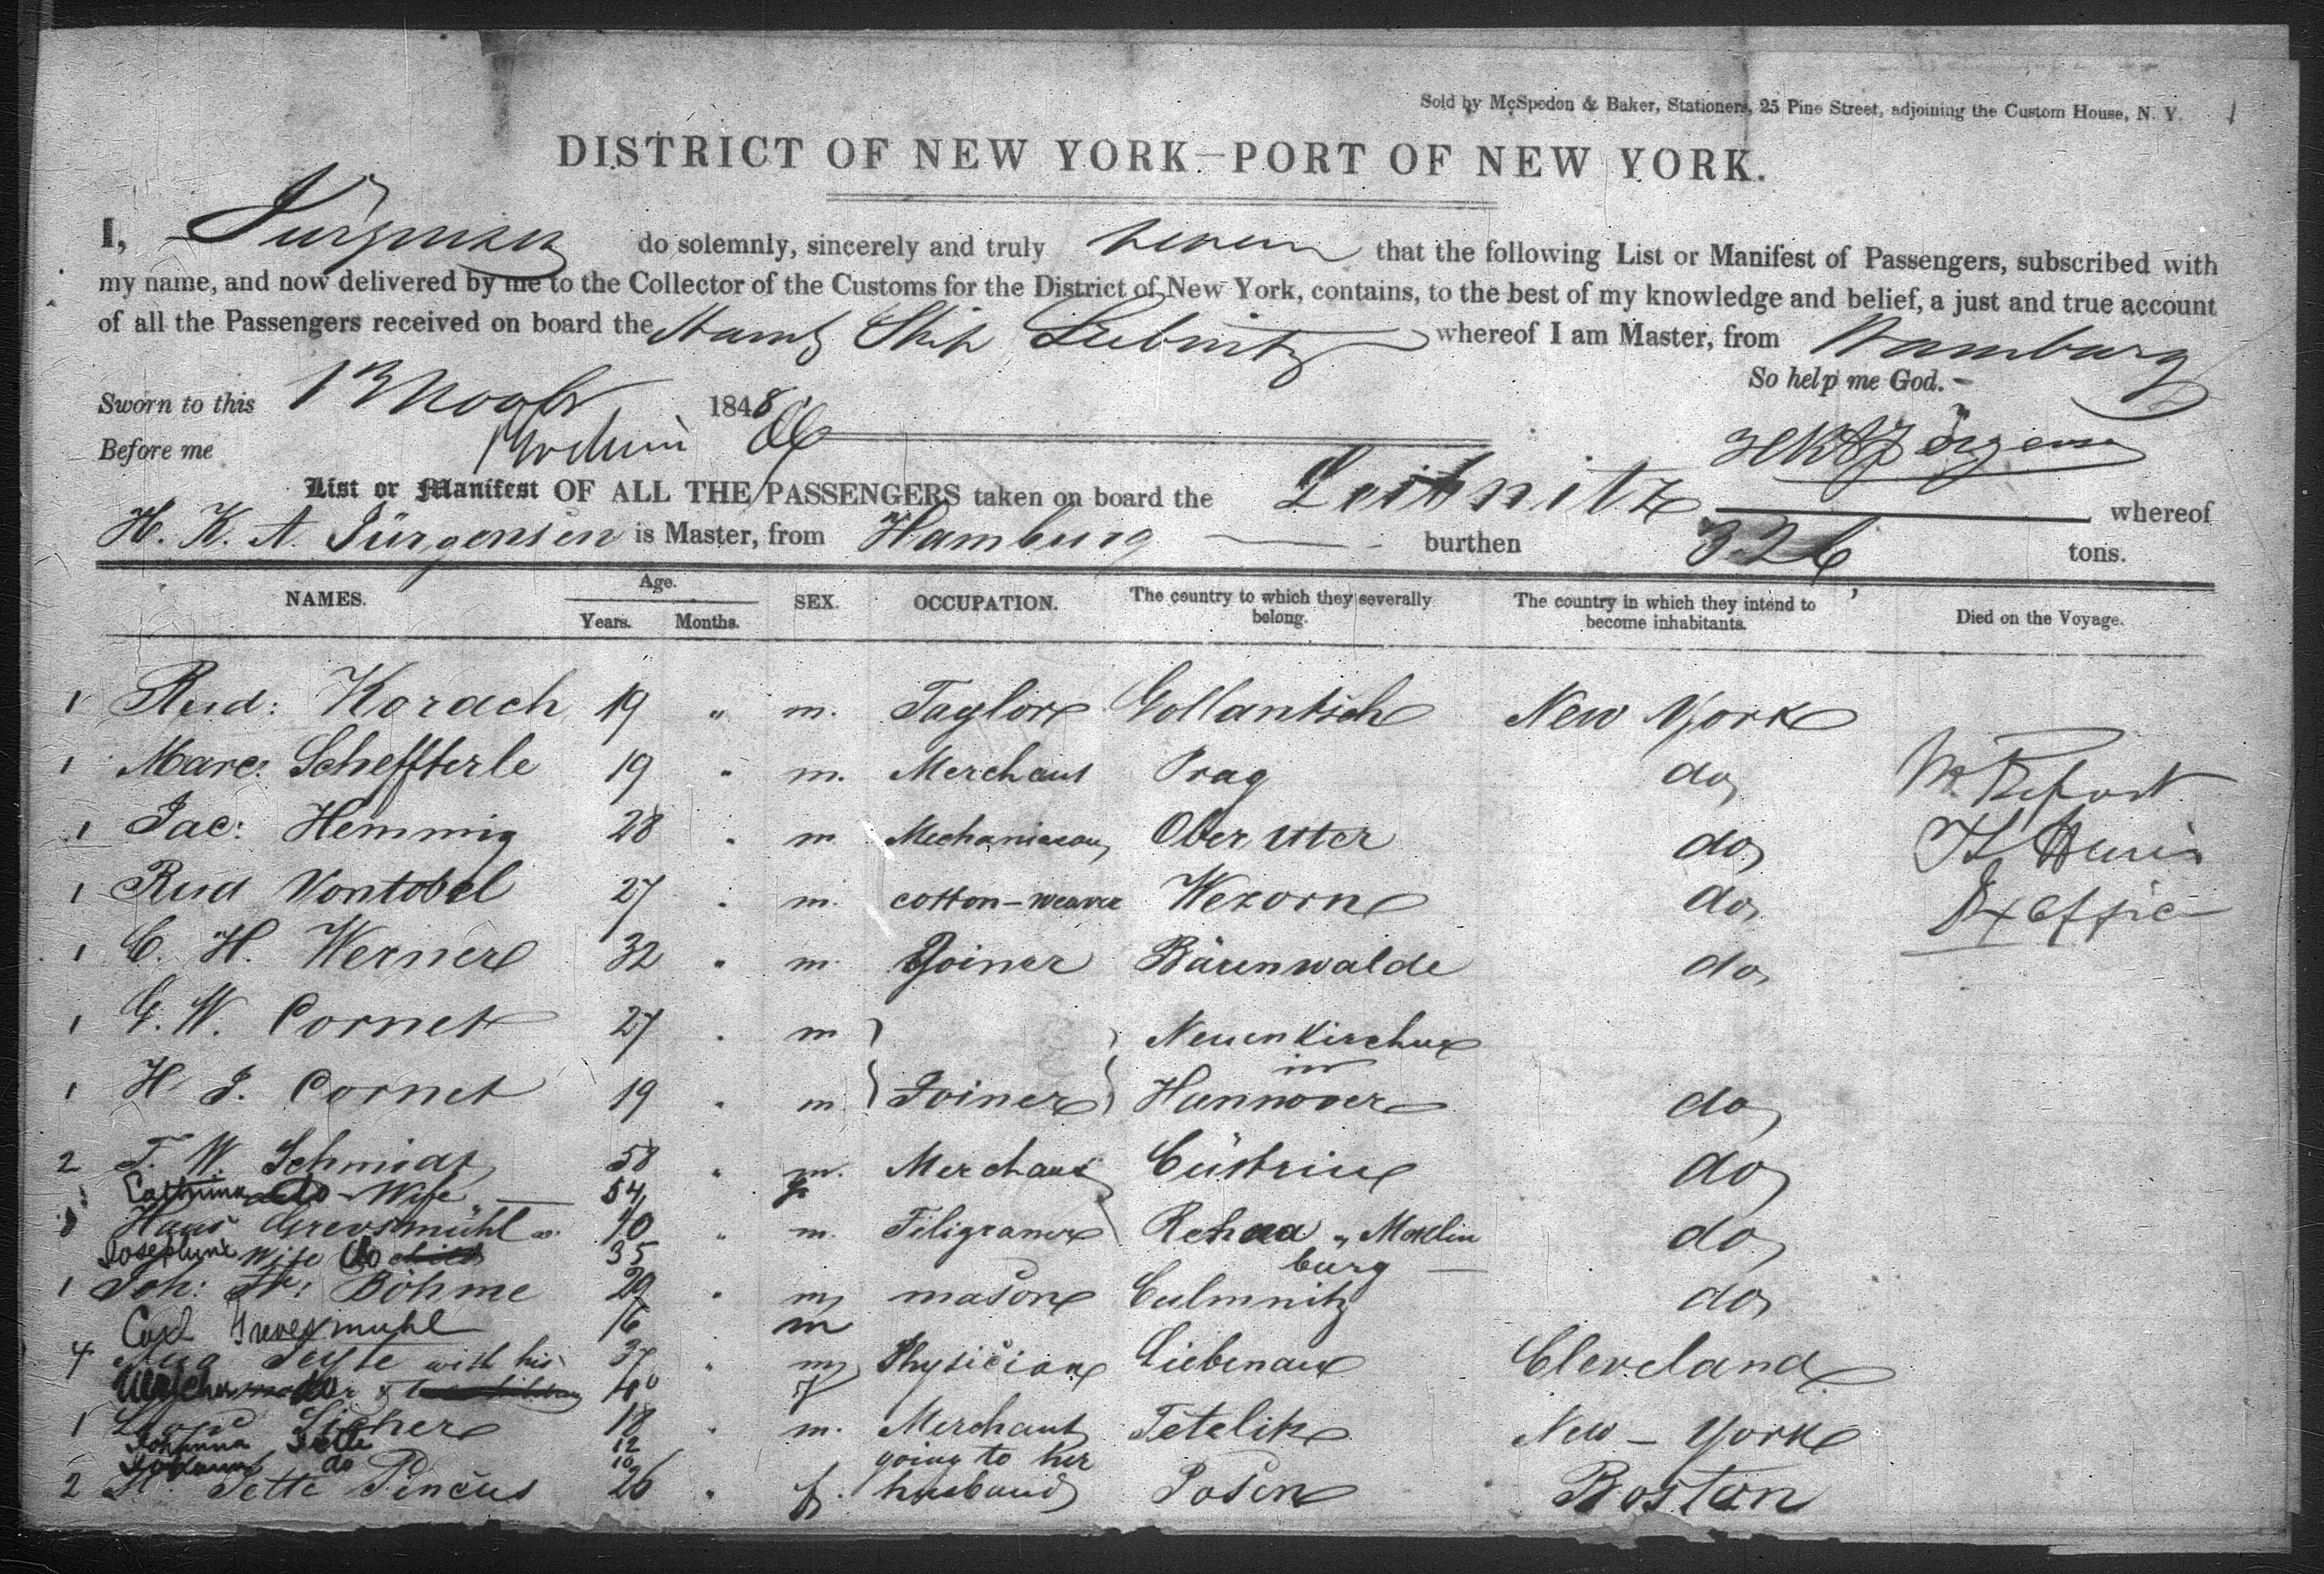 Sold by McSpedon & Baker, Stationers, 25 Pine Street, adjoining the Custom House, N. Y. 1
DISTRICT OF NEW YORK—PORT OF NEW YORK.
I, Jürgensen do solemnly, sincerely and truly swear that the following List or Manifest of Passengers, subscribed with
my name, and now delivered by me to the Collector of the Customs for the District of New York, contains, to the best of my knowledge and belief, a just and true account
of all the Passengers received on board the Hamb Ship Leibnitz whereof I am Master, from Hamburg
So help me God.
Sworn to this 13 Novbr 1848
Before me
HKA Jürgensen
List or Manifest OF ALL THE PASSENGERS taken on board the Leibnitz whereof
H. K. A. Jürgensen is Master, from Hamburg burthen 326 tons.
NAMES. Age. Years. Months. SEX. OCCUPATION. The country to which they severally belong. The country in which they intend to become inhabitants. Died on the Voyage.
1 Rud: Korach 19 " m. Taylor Gollantsch New York
1 Marc: Scheffterle 19 " m. Merchant Prag do
1 Jac: Hemmig 28 " m Ober Uter do
1 Rud Vontobel 27 " m. cotton-weaver Wezorn do
1 C. H. Werner 32 " m. Joiner Bärenwalde do
1 G. W. Cornet 27 " m Neuenkirchen
in
1 H J. Cornet 19 " m Joiner Hannover do
2 F. W. Schmidt 58 " m. Merchant Cüstrin do
do Wife 54
3 Hans Grevsmühl 40 " m. Filigraner Rehna " Mecklin do
Josephine Wife do child 35 burg
1 Joh: Fr: Böhme 29 " m mason Culmnitz do
Carl Grevesmuhl 16 m
4 with his 37 " m Physician Liebenau Cleveland
do 40 f
1 18 " m. Merchant Tetelik New-York
Johanna 12 going to her
Johann do 10
2 Jette Pincus 26 " f. husband Posen Boston